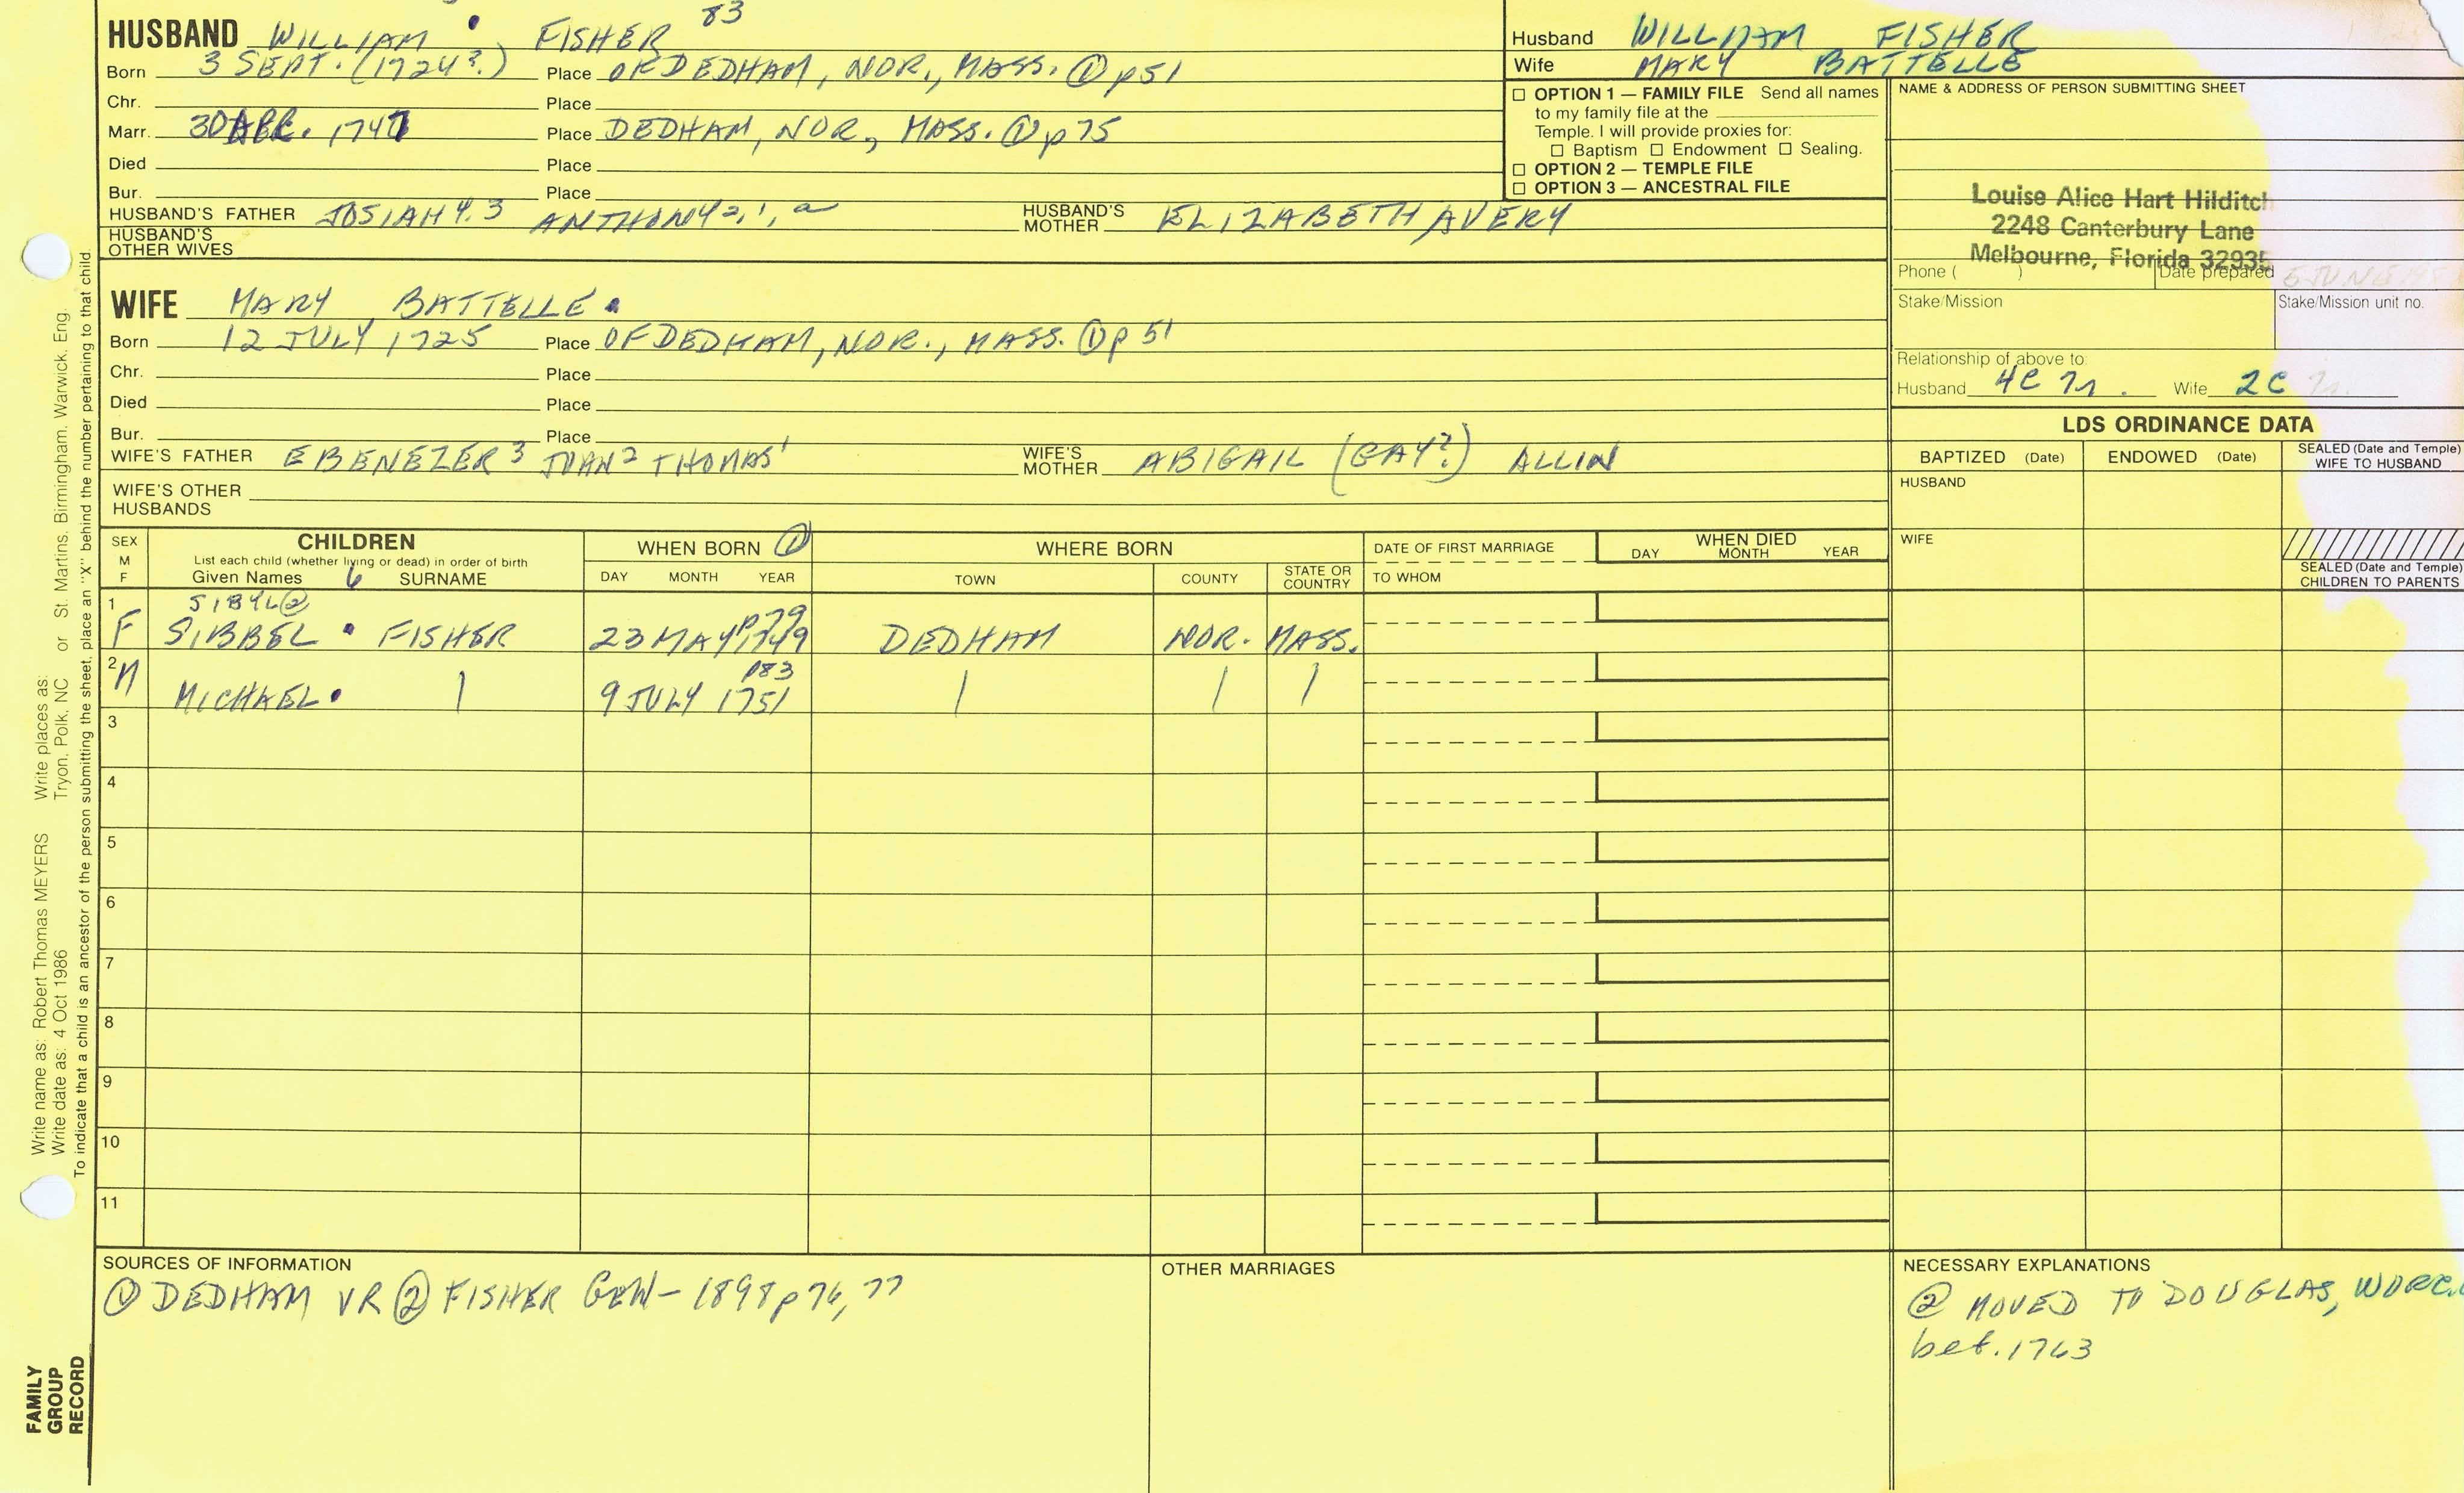 HUSBAND WILLIAM • FISHER 83
Born 3 SEPT. (1724?) Place OF DEDHAM, NOR., MASS. ① p51
Chr. Place
Marr. 30 APR. 1747 Place DEDHAM, NOR., MASS. ① p75
Died Place
Bur. Place
HUSBAND'S FATHER JOSIAH 4,3 ANTHONY 2,1,a HUSBAND'S MOTHER ELIZABETH AVERY
HUSBAND'S OTHER WIVES
Husband WILLIAM FISHER
Wife MARY BATTELLE
☐ OPTION 1 — FAMILY FILE Send all names
to my family file at the
Temple. I will provide proxies for:
☐ Baptism ☐ Endowment ☐ Sealing.
☐ OPTION 2 — TEMPLE FILE
☐ OPTION 3 — ANCESTRAL FILE
NAME & ADDRESS OF PERSON SUBMITTING SHEET
Louise Alice Hart Hilditch
2248 Canterbury Lane
Melbourne, Florida 32935
Phone ( ) Date prepared
Stake/Mission Stake/Mission unit no.
Relationship of above to:
Husband 4C Wife 2C
WIFE MARY BATTELLE •
Born 12 JULY 1725 Place OF DEDHAM, NOR., MASS. ① p 51
Chr. Place
Died Place
Bur. Place
WIFE'S FATHER EBENEZER 3 JOHN 2 THOMAS 1 WIFE'S MOTHER ABIGAIL (GAY?) ALLIN
WIFE'S OTHER HUSBANDS
LDS ORDINANCE DATA
BAPTIZED (Date) ENDOWED (Date) SEALED (Date and Temple) WIFE TO HUSBAND
HUSBAND
WIFE
SEALED (Date and Temple) CHILDREN TO PARENTS
SEX M F
CHILDREN
List each child (whether living or dead) in order of birth
Given Names 6 SURNAME
WHEN BORN ①
DAY MONTH YEAR
WHERE BORN
TOWN COUNTY STATE OR COUNTRY
DATE OF FIRST MARRIAGE
TO WHOM
WHEN DIED
DAY MONTH YEAR
1 SIBYL ②
F SIBBEL • FISHER 23 MAY 1749 p79 DEDHAM NOR. MASS.
2 M MICHAEL • | 9 JULY 1751 p83 | | |
3
4
5
6
7
8
9
10
11
SOURCES OF INFORMATION
① DEDHAM VR ② FISHER GEN- 1898 p 76, 77
OTHER MARRIAGES
NECESSARY EXPLANATIONS
② MOVED TO DOUGLAS, WORC.
bef. 1763
Write name as: Robert Thomas MEYERS Write places as: St. Martins, Birmingham, Warwick, Eng.
Write date as: 4 Oct 1986 Tryon, Polk, NC or
To indicate that a child is an ancestor of the person submitting the sheet, place an "X" behind the number pertaining to that child.
FAMILY
GROUP
RECORD